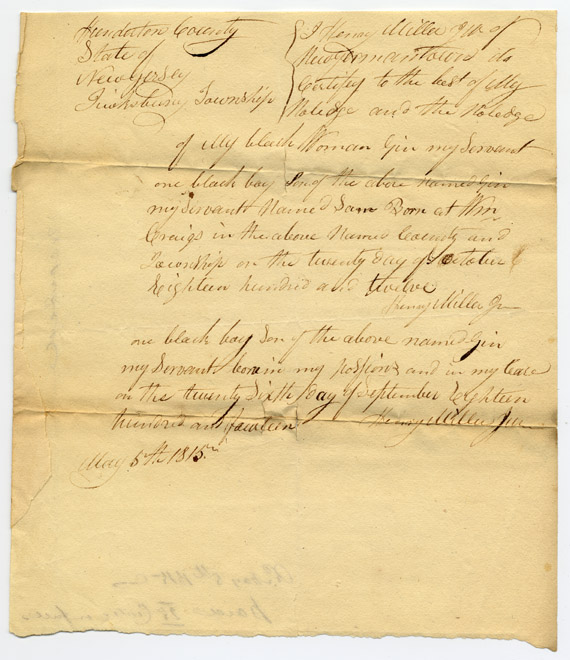 Hunderton County
State of
New Jersey
Tuiksbury Township
I Henry Miller Jr of
New Germantown do
Certify to the best of My
Noledge and the Noledge
of My black Woman Gin my Servant
one black boy Son of the above Named Gin
my Servant Named Sam Born at Wm
Craigs in the above Name County and
Township on the twenty Day of October
Eighteen hundred and twelve
Henry Miller Jr
one black boy Son of the above named Gin
my Servant born in my and in my
on the twenty Sixth Day of September Eighteen
hundred and fourteen Henry Miller Jur
May 5th 1815